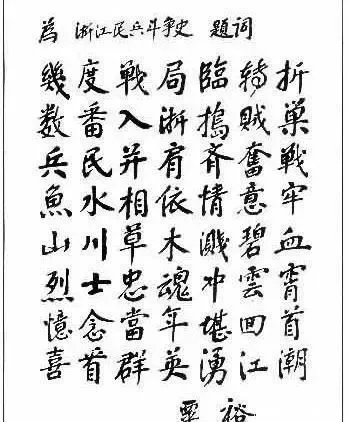 為 浙江民兵斗争史 題词
幾度戰局臨轉折
数番入浙搗賊巢
兵民并肩齊奮戰
魚水相依情意牢
山川草木濺碧血
烈士忠魂冲雲霄
憶念當年堪回首
喜看群英湧江潮
粟裕